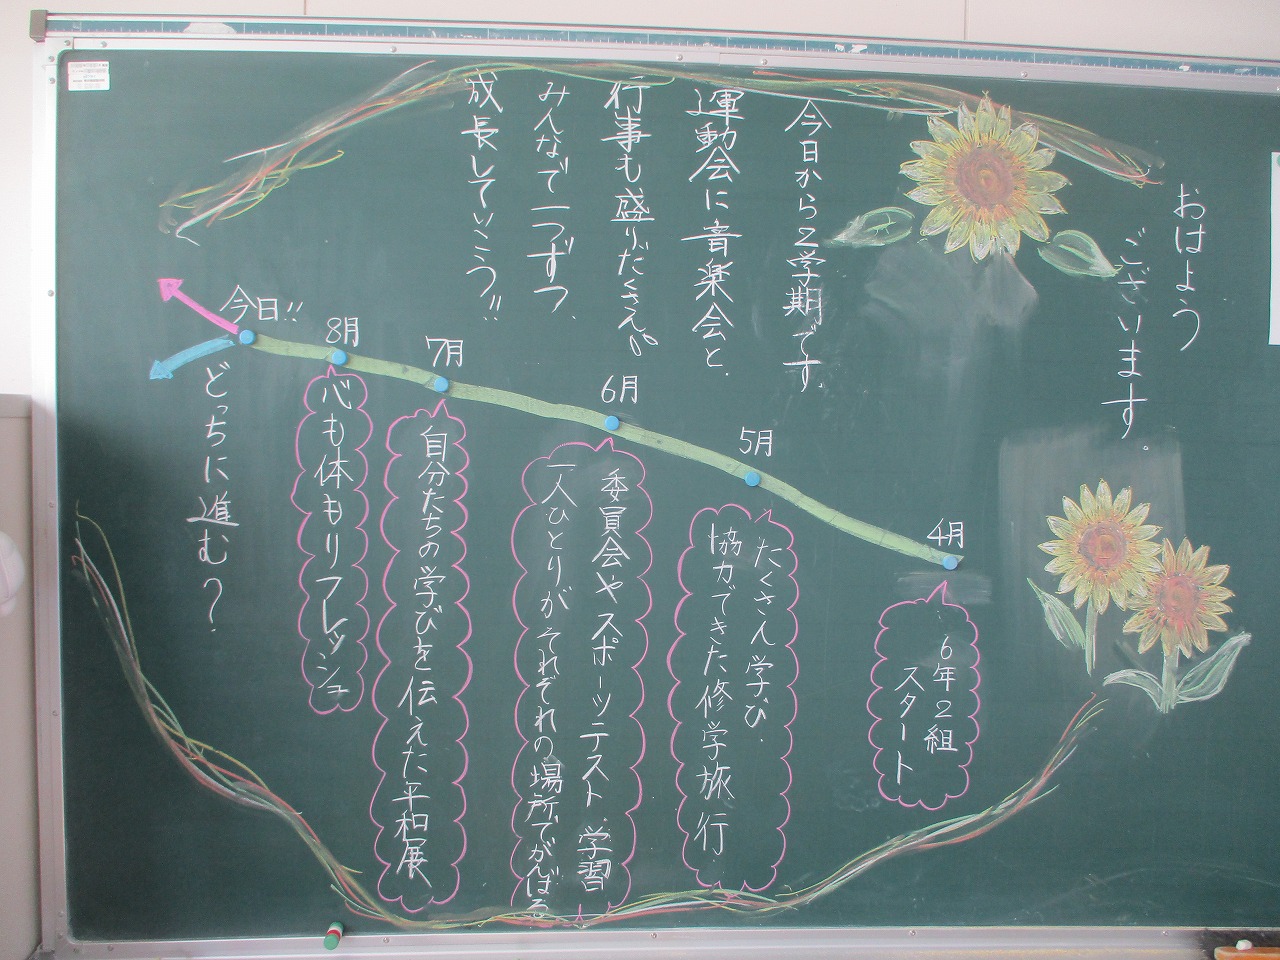 おはよう
ございます。
今日から2学期です。
運動会に音楽会と、
行事も盛りだくさん。
みんなで一つずつ、
成長していこう!!
4月
6年2組
スタート
5月
たくさん学び、
協力できた修学旅行
6月
委員会やスポーツテスト、学習
一人ひとりがそれぞれの場所でがんばる
7月
自分たちの学びを伝えた平和展
8月
心も体もリフレッシュ
今日!!
どっちに進む?